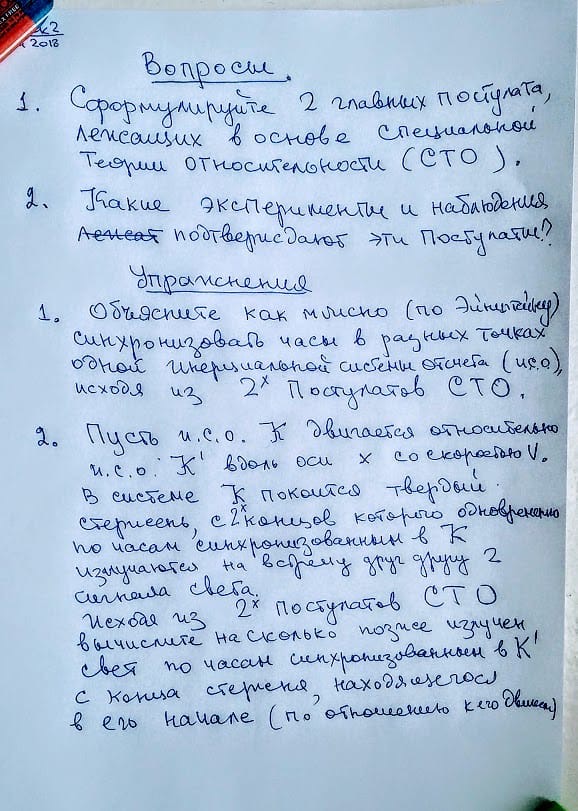 2018
Вопросы.
1. Сформулируйте 2 главных постулата,
лежащих в основе специальной
теории относительности (СТО).
2. Какие эксперименты и наблюдения
лежат подтверждают эти постулаты?
Упражнения
1. Объясните как можно (по Эйнштейну)
синхронизовать часы в разных точках
одной инерциальной системы отсчета (и.с.о),
исходя из 2х Постулатов СТО.
2. Пусть и.с.о. K двигается относительно
и.с.о. K' вдоль оси x со скоростью V.
В системе K покоится твердый
стержень, с 2х концов которого одновременно
по часам синхронизованным в K
излучаются на встречу друг другу 2
сигнала света.
Исходя из 2х Постулатов СТО
вычислите на сколько позже излучен
свет по часам синхронизованным в K'
с конца стержня, находящегося
в его начале (по отношению к его движен)